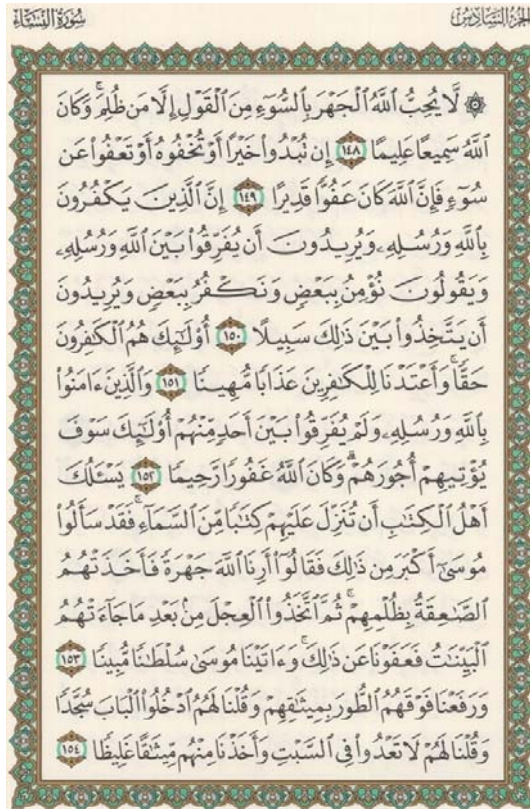 سُورَةُ النِّسَاءِ
الجُزْءُ السَّادِسُ
۞ لَّا يُحِبُّ ٱللَّهُ ٱلْجَهْرَ بِٱلسُّوٓءِ مِنَ ٱلْقَوْلِ إِلَّا مَن ظُلِمَ ۚ وَكَانَ
ٱللَّهُ سَمِيعًا عَلِيمًا ١٤٨ إِن تُبْدُوا۟ خَيْرًا أَوْ تُخْفُوهُ أَوْ تَعْفُوا۟ عَن
سُوٓءٍ فَإِنَّ ٱللَّهَ كَانَ عَفُوًّا قَدِيرًا ١٤٩ إِنَّ ٱلَّذِينَ يَكْفُرُونَ
بِٱللَّهِ وَرُسُلِهِۦ وَيُرِيدُونَ أَن يُفَرِّقُوا۟ بَيْنَ ٱللَّهِ وَرُسُلِهِۦ
وَيَقُولُونَ نُؤْمِنُ بِبَعْضٍ وَنَكْفُرُ بِبَعْضٍ وَيُرِيدُونَ
أَن يَتَّخِذُوا۟ بَيْنَ ذَٰلِكَ سَبِيلًا ١٥٠ أُو۟لَٰٓئِكَ هُمُ ٱلْكَٰفِرُونَ
حَقًّا ۚ وَأَعْتَدْنَا لِلْكَٰفِرِينَ عَذَابًا مُّهِينًا ١٥١ وَٱلَّذِينَ ءَامَنُوا۟
بِٱللَّهِ وَرُسُلِهِۦ وَلَمْ يُفَرِّقُوا۟ بَيْنَ أَحَدٍ مِّنْهُمْ أُو۟لَٰٓئِكَ سَوْفَ
يُؤْتِيهِمْ أُجُورَهُمْ ۗ وَكَانَ ٱللَّهُ غَفُورًا رَّحِيمًا ١٥٢ يَسْـَٔلُكَ
أَهْلُ ٱلْكِتَٰبِ أَن تُنَزِّلَ عَلَيْهِمْ كِتَٰبًا مِّنَ ٱلسَّمَآءِ ۚ فَقَدْ سَأَلُوا۟
مُوسَىٰٓ أَكْبَرَ مِن ذَٰلِكَ فَقَالُوٓا۟ أَرِنَا ٱللَّهَ جَهْرَةً فَأَخَذَتْهُمُ
ٱلصَّٰعِقَةُ بِظُلْمِهِمْ ۚ ثُمَّ ٱتَّخَذُوا۟ ٱلْعِجْلَ مِنۢ بَعْدِ مَا جَآءَتْهُمُ
ٱلْبَيِّنَٰتُ فَعَفَوْنَا عَن ذَٰلِكَ ۚ وَءَاتَيْنَا مُوسَىٰ سُلْطَٰنًا مُّبِينًا ١٥٣
وَرَفَعْنَا فَوْقَهُمُ ٱلطُّورَ بِمِيثَٰقِهِمْ وَقُلْنَا لَهُمُ ٱدْخُلُوا۟ ٱلْبَابَ سُجَّدًا
وَقُلْنَا لَهُمْ لَا تَعْدُوا۟ فِى ٱلسَّبْتِ وَأَخَذْنَا مِنْهُم مِّيثَٰقًا غَلِيظًا ١٥٤